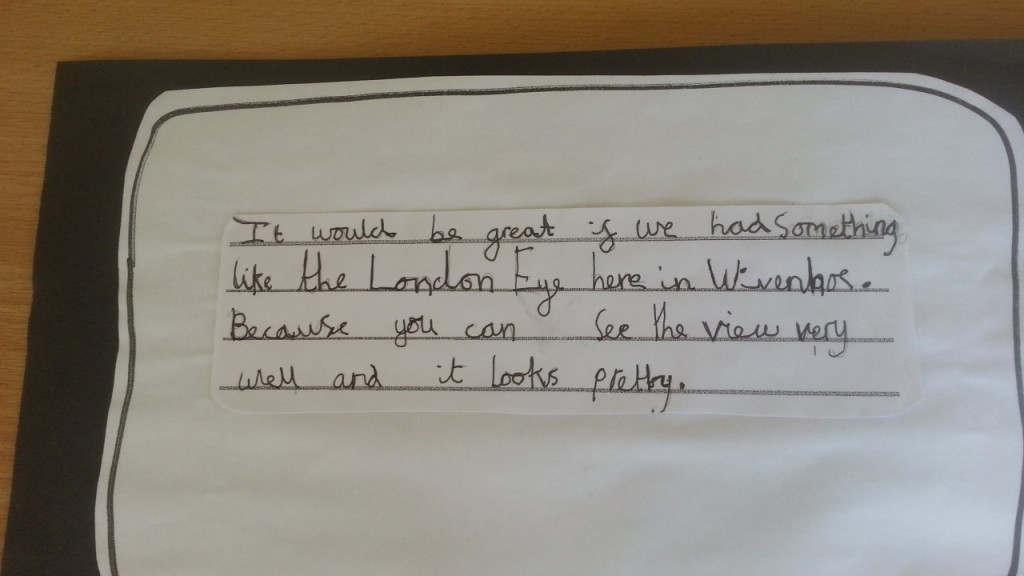 It would be great if we had something
like the London Eye here in Wivenhoe.
Because you can see the view very
well and it looks pretty.